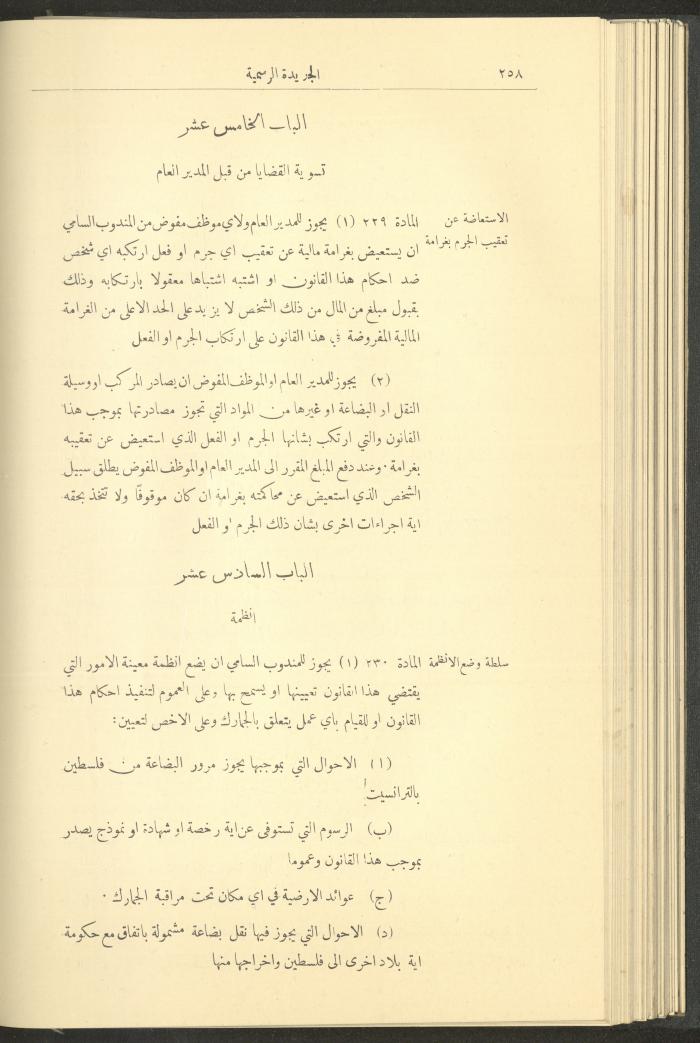 ٢٥٨
الجريدة الرسمية
الباب الخامس عشر
تسوية القضايا من قبل المدير العام
الاستعاضة عن
تعقيب الجرم بغرامة
المادة ٢٢٩ (١) يجوز للمدير العام ولاي موظف مفوض من المندوب السامي
ان يستعيض بغرامة مالية عن تعقيب اي جرم او فعل ارتكبه اي شخص
ضد احكام هذا القانون او اشتبه اشتباها معقولا بارتكابه وذلك
بقبول مبلغ من المال من ذلك الشخص لا يزيد على الحد الاعلى من الغرامة
المالية المفروضة في هذا القانون على ارتكاب الجرم او الفعل
(٢) يجوز للمدير العام او الموظف المفوض ان يصادر المركب او وسيلة
النقل او البضاعة او غيرها من المواد التي تجوز مصادرتها بموجب هذا
القانون والتي ارتكب بشانها الجرم او الفعل الذي استعيض عن تعقيبه
بغرامة . وعند دفع المبلغ المقرر الى المدير العام او الموظف المفوض يطلق سبيل
الشخص الذي استعيض عن محاكمته بغرامة ان كان موقوفا ولا تتخذ بحقه
اية اجراءات اخرى بشان ذلك الجرم او الفعل
الباب السادس عشر
انظمة
سلطة وضع الانظمة
المادة ٢٣٠ (١) يجوز للمندوب السامي ان يضع انظمة معينة الامور التي
يقتضي هذا القانون تعيينها او يسمح بها وعلى العموم لتنفيذ احكام هذا
القانون او للقيام باي عمل يتعلق بالجمارك وعلى الاخص لتعيين:
(ا) الاحوال التي بموجبها يجوز مرور البضاعة من فلسطين
بالترانسيت
(ب) الرسوم التي تستوفى عن اية رخصة او شهادة او نموذج يصدر
بموجب هذا القانون وعموما
(ج) عوائد الارضية في اي مكان تحت مراقبة الجمارك .
(د) الاحوال التي يجوز فيها نقل بضاعة مشمولة باتفاق مع حكومة
اية بلاد اخرى الى فلسطين واخراجها منها